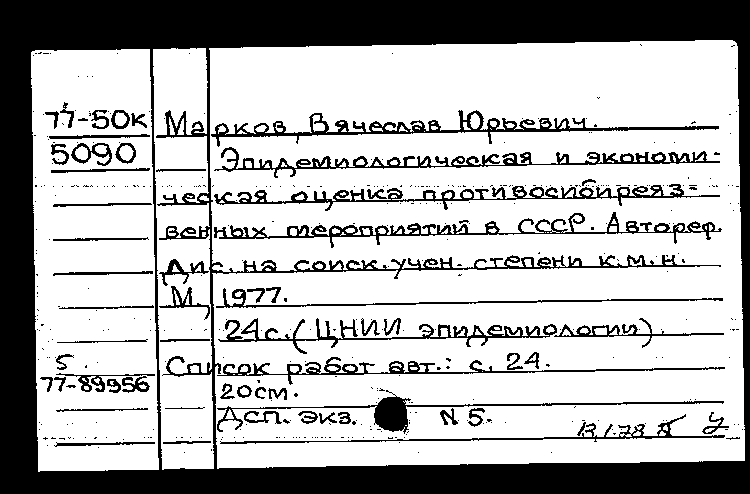 77-50к Марков, Вячеслав Юрьевич.
5090 Эпидемиологическая и экономи-
ческая оценка противосибиреяз-
венных мероприятий в СССР. Автореф.
Дис. на соиск. учен. степени к.м.н.
М., 1977.
24с. (ЦНИИ эпидемиологии).
5. Список работ авт.: с. 24.
77-89956 20см.
Дсп. экз. N 5.